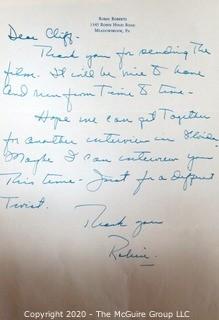 ROBIN ROBERTS
1345 ROBIN HOOD ROAD
MEADOWBROOK, PA
Dear Cliff-
Thank you for sending the
film. It will be nice to have
and run from time to time-
Hope we can get together
for another interview in Florida.
Maybe I can interview you
this time - Just for a different
twist.
Thank you
Robin.
Copyright 2020 - The McGuire Group LLC